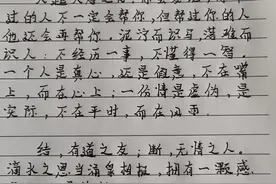 过的人不一定会帮你,但帮过你的人
他还会再帮你。泥泞而识马,落难而
识人;不经历一事,不懂得一智。
一个人是真心,还是假意,不在嘴
上,而在心上;一份情是虚伪,是
实际,不在平时,而在风雨。
结,有道之友;断,无情之人。
滴水之恩当涌泉相报,拥有一颗感